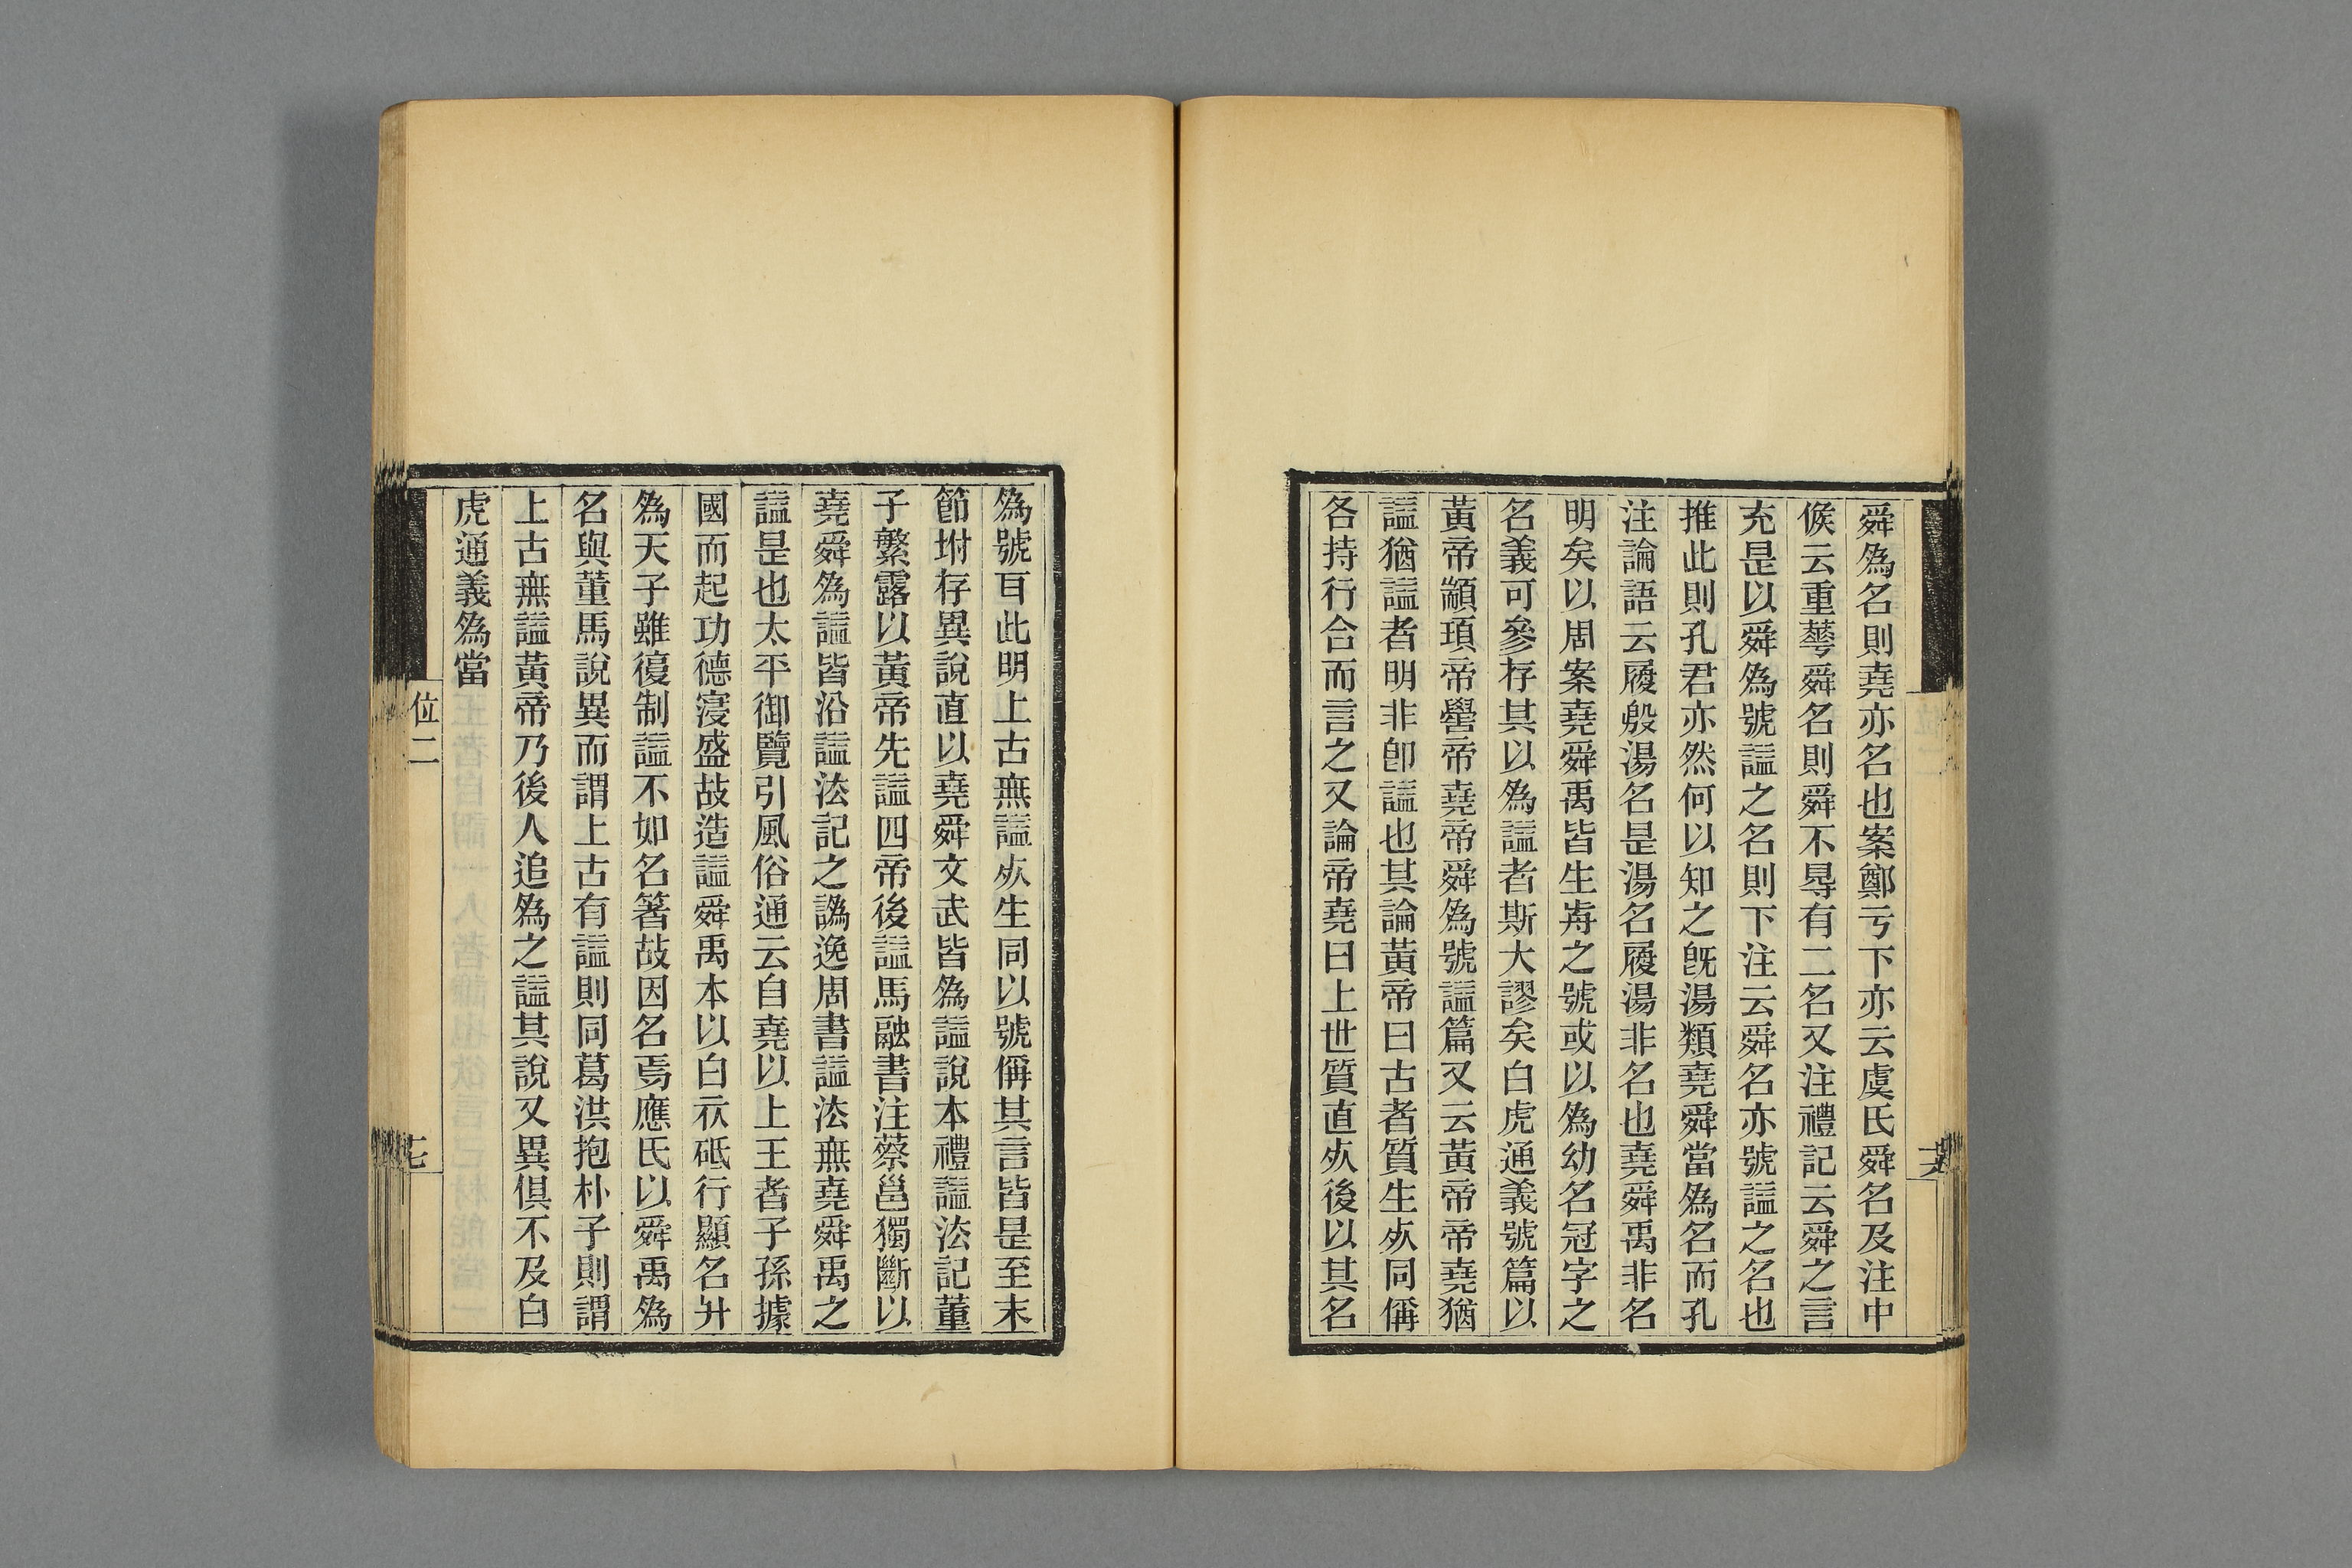 舜爲名則堯亦名也案鄭亏下亦云虞氏舜名及注中
候云重蕚舜名則舜不㝵有二名又注禮記云舜之言
充是以舜爲號諡之名則下注云舜名亦號諡之名也
推此則孔君亦然何以知之旣湯類堯舜當爲名而孔
注論語云履殷湯名是湯名履湯非名也堯舜禹非名
明矣以周案堯舜禹皆生歬之號或以爲幼名冠字之
名義可參存其以爲諡者斯大謬矣白虎通義號篇以
黃帝顓頊帝嚳帝堯帝舜爲號諡篇又云黃帝帝堯猶
諡猶諡者明非卽諡也其論黃帝曰古者質生𣦸同偁
各持行合而言之又論帝堯曰上世質直𣦸後以其名
爲號百此明上古無諡𣦸生同以號偁其言皆是至末
節坿存異說直以堯舜文武皆爲諡說本禮諡法記董
子繁露以黃帝先諡四帝後諡馬融書注蔡邕獨斷以
堯舜爲諡皆沿諡法記之譌逸周書諡法無堯舜禹之
諡是也太平御覽引風俗通云自堯以上王者子孫據
國而起功德寖盛故造諡舜禹本以白衣砥行顯名升
爲天子雖復制諡不如名箸故因名焉應氏以舜禹爲
名與董馬說異而謂上古有諡則同葛洪抱朴子則謂
上古無諡黃帝乃後人追爲之諡其說又異俱不及白
虎通義爲當
位二